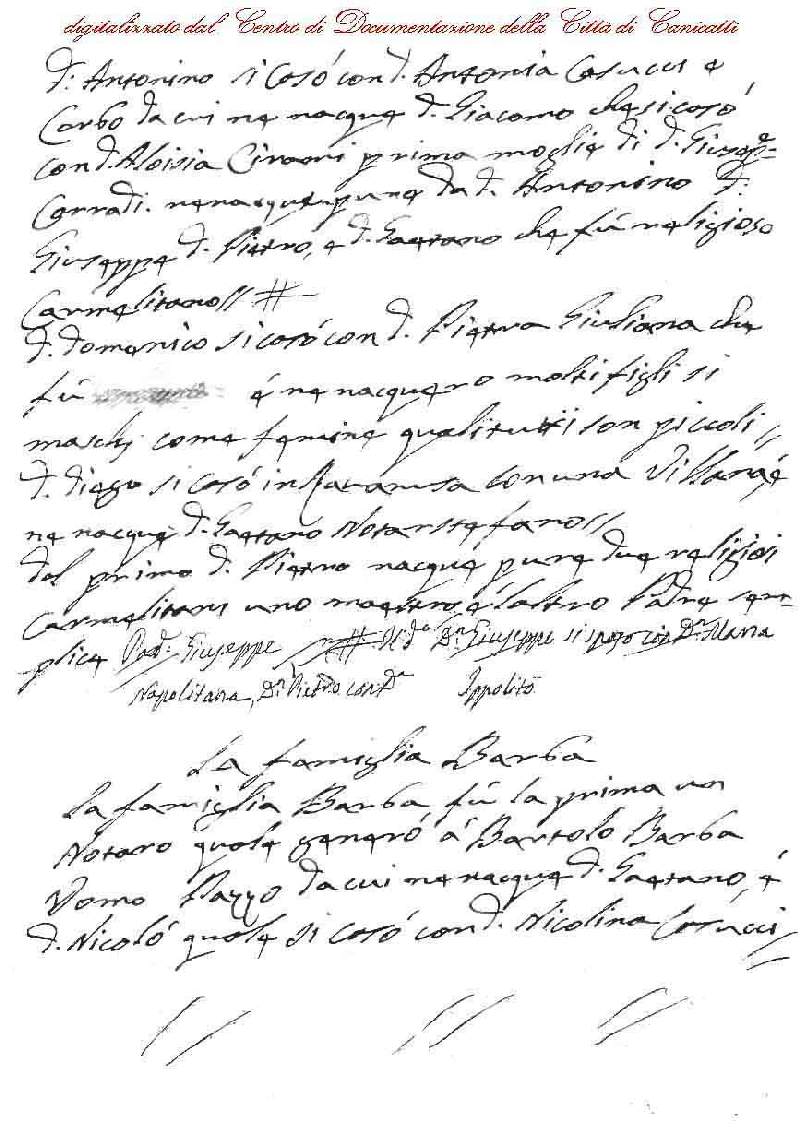 digitalizzato dal Centro di Documentazione della Città di Canicattì
d. Antonino si casó con d. Antonia Casucci e
Corbo da cui ne nacque d. Giacomo che si casó
con d. Aloisia Cirami prima moglie di d. Giusepe
Corradi. ne nacque pure da d. Antonino d.
Giuseppe d. Pietro, e d. Gaetano che fú religioso
Carmelitano// # -
d. domenico si casó con d. Pietra Giuliana che
fú é ne nacquero molti figli si
maschj come femine quali tutti son piccoli //
d. diego si casó in Ravanusa con una Villana, é
ne nacque d. Gaetano Notarstefano//
dal primo d. Pietro nacque pure due religiosi
Carmelitani uno maestro é l'altro Padre sem-
plice Pad. Giuseppe # Il d.º D.n Giuseppe si sposo con D.a Maria
Napolitana, D.n Pietro con D.a Ippolito
La famiglia Barba
La famiglia Barba fú la prima un
Notaro quale generó á Bartolo Barba
Vomo Pazzo da cui ne nacque d. Gaetano, é
d. Nicoló quale si casó con d. Nicolina Casucci //
// // //